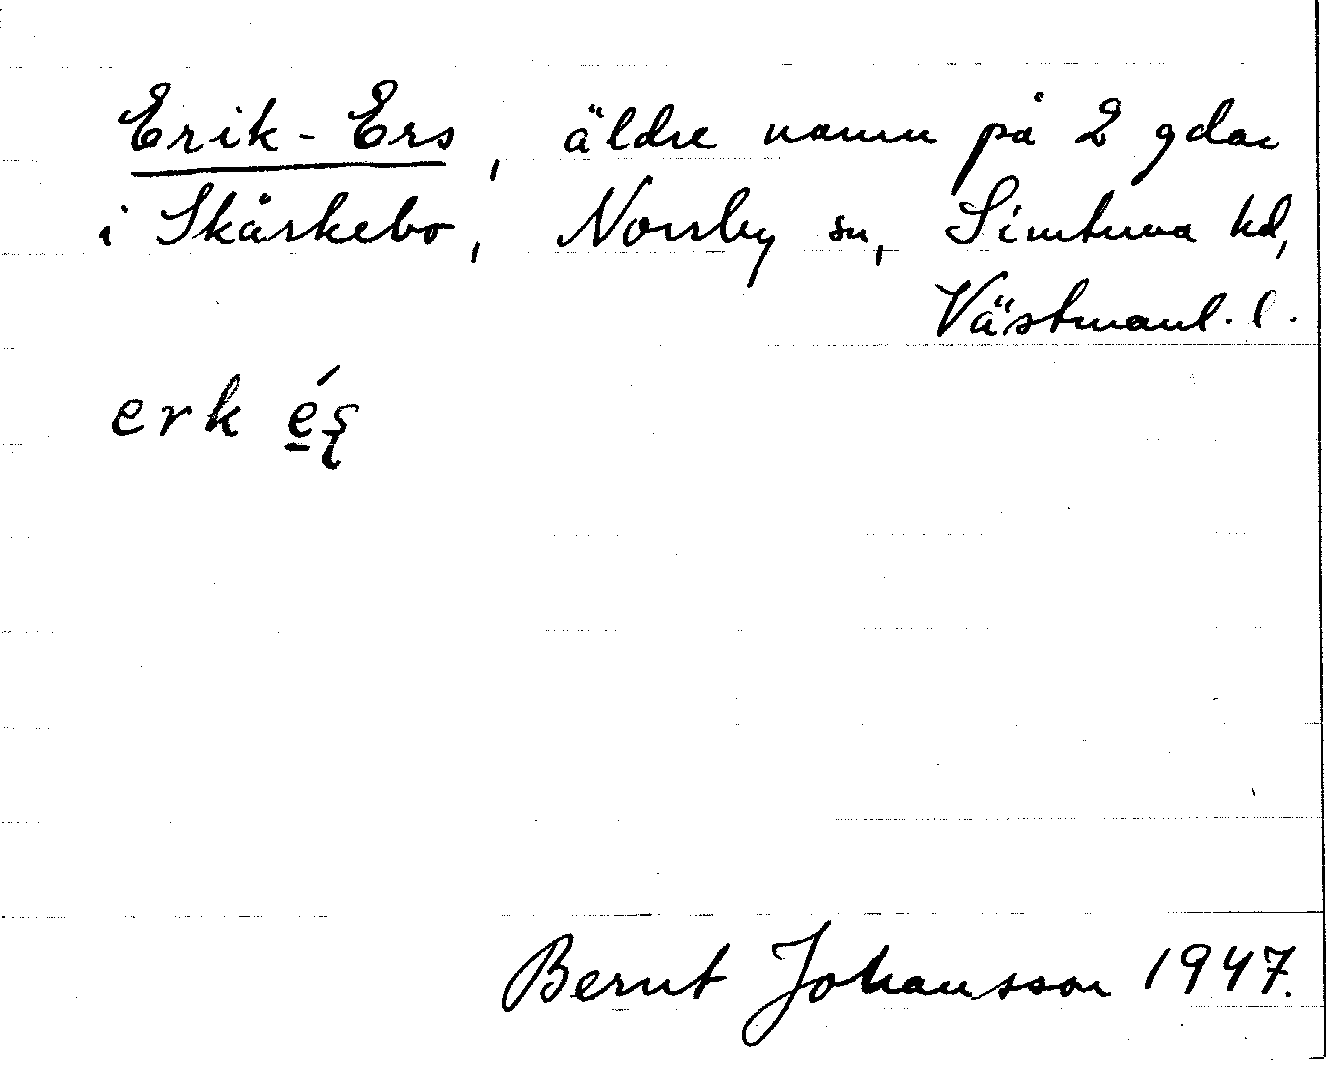 Erik-Ers, äldre namn på 2 gdar
i Skärkebo, Norrby sn, Simtuna hd,
Västmanl. l.
erk é̱ʂ
Bernt Johansson 1947.